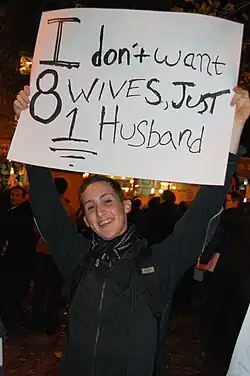 I don't want
8 WIVES, JUST
1 Husband